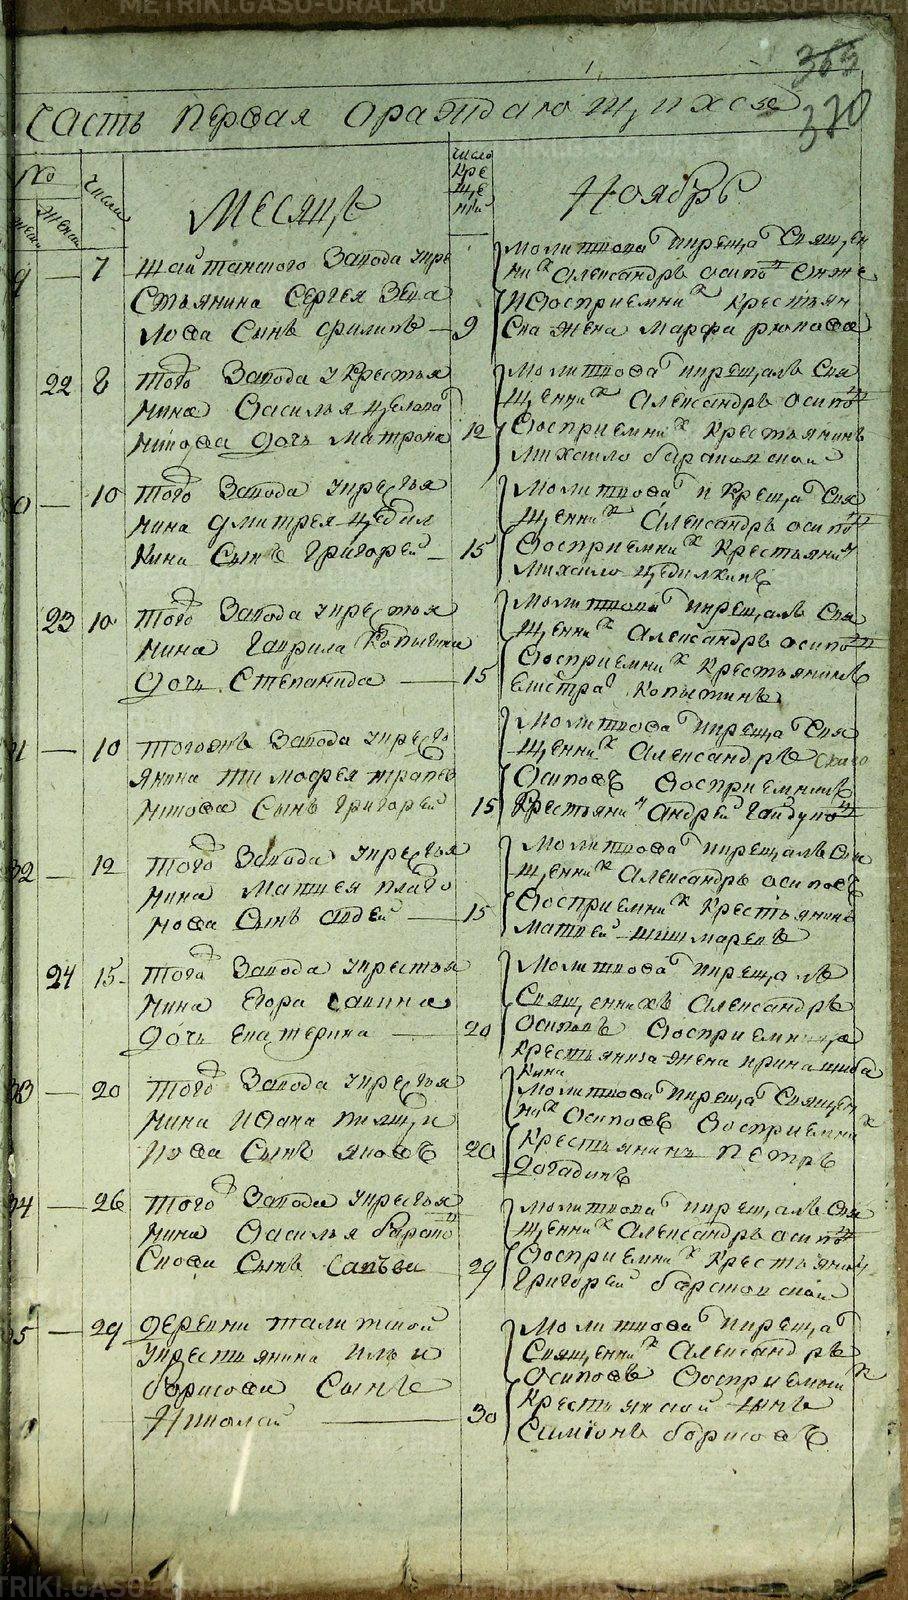 METRIKI.GASO-URAL.RU
METRIKI.GASO-URAL.RU
365
370
Часть первая ораждающихся
No
Число
Месяцъ
Число
Кре
ще
нии
Ноябрь
7
Шайтанского завода укре
стьянина Сергея
сынъ Филипъ
9
Молитвова и креща Священ
никъ Александръ Осипо
Восприемникъ крестьян
ска жена Марфа
22
8
Того завода у крестья
нина Василья
дочь Матрона
12
Молитвова и крещалъ Свя
щенникъ Александръ Осипо
Восприемникъ крестьянинъ
Михаило
10
Того завода укрестья
нина Дмитрея Цедил
кина сынъ Григорей
15
Молитвова и креща Свя
щенникъ Александръ Осипо
Восприемникъ крестьянин
Михаило Цедилкинъ
23
10
Того завода укрестья
нина Гаврила Копытина
дочь Степанида
15
Молитвова и крещалъ Свя
щенникъ Александръ Осипо
Восприемникъ крестьянинъ
Елистра Копытинъ
10
Тогожъ завода укресть
янина Тимофея
сынъ Григорей
15
Молитвова и креща Свя
щенникъ Александръ
Осиповъ Восприемникъ
Крестьянин Андрей
12
Того завода укрестья
нина Матвея
сынъ
15
Молитвова и крещалъ Свя
щенникъ Александръ Осиповъ
Восприемникъ крестьянинъ
Матвей Шишмаревъ
24
15
Того завода укрестья
нина Егора Савина
дочь Екатерина
20
Молитвова и крещалъ
Священникъ Александръ
Осиповъ Восприемница
жена Ирина
кина
20
Того завода укрестья
нина Ивана
сынъ Яковъ
20
Молитвова и креща Священ
никъ Осиповъ Восприемник
Крестьянинъ Петръ
Догадинъ
26
Того завода укрестья
нина Василья
скова сынъ Савва
29
Молитвова и крещалъ Свя
щенникъ Александръ Осипо
Восприемникъ крестьянин
Григорей
29
деревни Талитской
укрестьянина Ильи
Борисова сынъ
Николай
30
Молитвова и креща
Священник Александръ
Осиповъ Восприемник
Крестьянской сынъ
Симіонъ Борисовъ
METRIKI.GASO-URAL.RU
METRIKI.GASO-URAL.RU